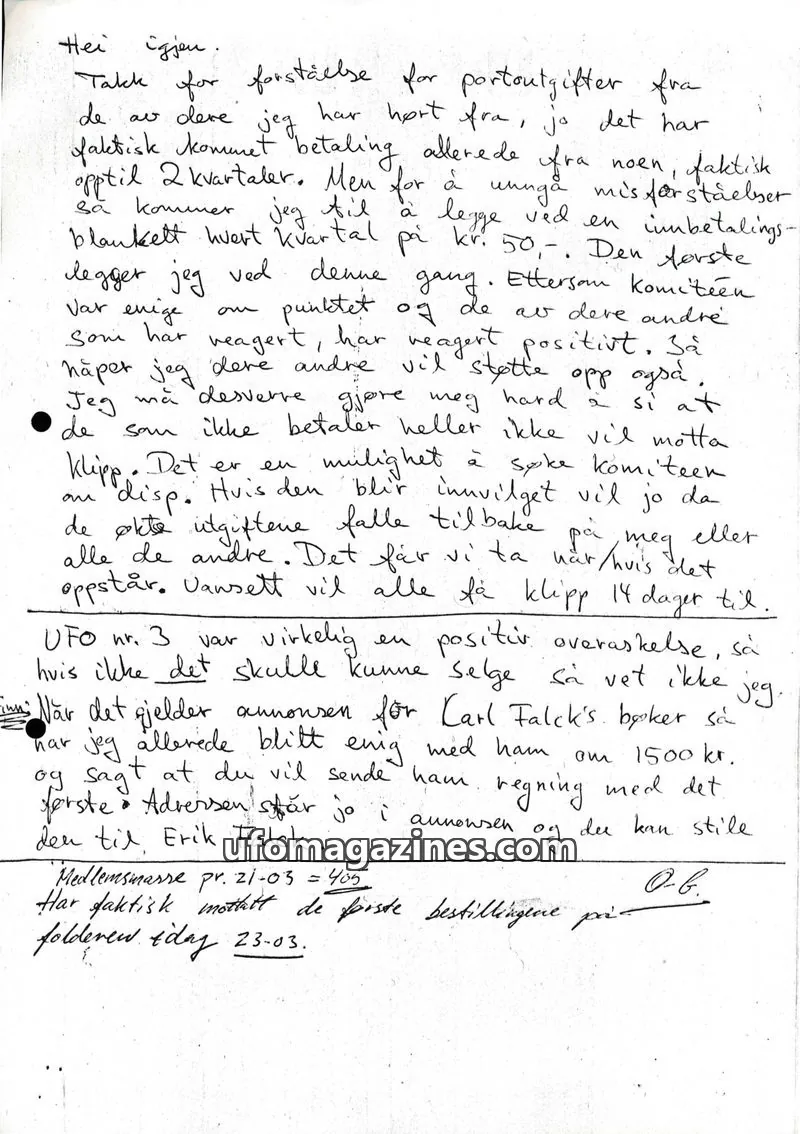 Hei igjen.
Takk for forståelse for portoutgifter fra
de av dere jeg har hørt fra, jo det har
faktisk kommet betaling allerede fra noen, faktisk
opptil 2 kvartaler. Men for å unngå misforståelser
så kommer jeg til å legge ved en innbetalings-
blankett hvert kvartal på kr. 50,-. Den første
legger jeg ved denne gang. Ettersom komiteén
var enige om punktet og de av dere andre
som har reagert, har reagert positivt. Så
håper jeg dere andre vil støtte opp også.
Jeg må desverre gjøre meg hard å si at
de som ikke betaler heller ikke vil motta
klipp. Det er en mulighet å søke komiteen
om disp. Hvis den blir innvilget vil jo da
de økte utgiftene falle tilbake på meg eller
alle de andre. Det får vi ta når/hvis det
oppstår. Uansett vil alle få klipp 14 dager til.
UFO nr. 3 var virkelig en positiv overaskelse, så
hvis ikke det skulle kunne selge så vet ikke jeg.
Når det gjelder annonsen for Carl Falck's bøker så
har jeg allerede blitt enig med ham om 1500 kr.
og sagt at du vil sende ham regning med det
første. Adressen står jo i annonsen og du kan stile
den til Erik
ufomagazines.com
Medlemsmasse pr. 21-03 = 405
O-G.
Har faktisk mottatt de første bestillingene på
folderen idag 23-03.